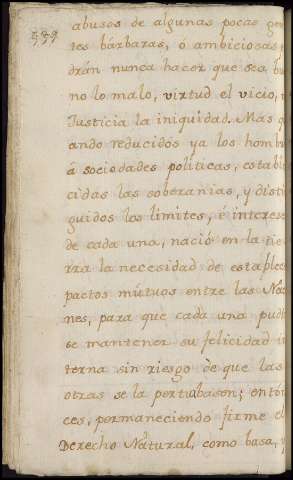 abusos de algunas pocas gen
589.
tes bárbaras, ó ambiciosas p
drán nunca hacer que sea bu
no lo malo, virtud el vicio,
Justicia la iniquidad. Mas q
ando reducidos ya los homb
á sociedades politicas, estable
cidas las soberanias, y disti
guidos los limites, é interese
de cada una, nació en la tie
rra la necesidad de establec
pactos mútuos entre las Na
nes, para que cada una pudi
se mantener su felicidad in
terna sin riesgo de que las
otras se la perturbasen; entón
ces, permaneciendo firme el
Derecho Natural, como basa, y